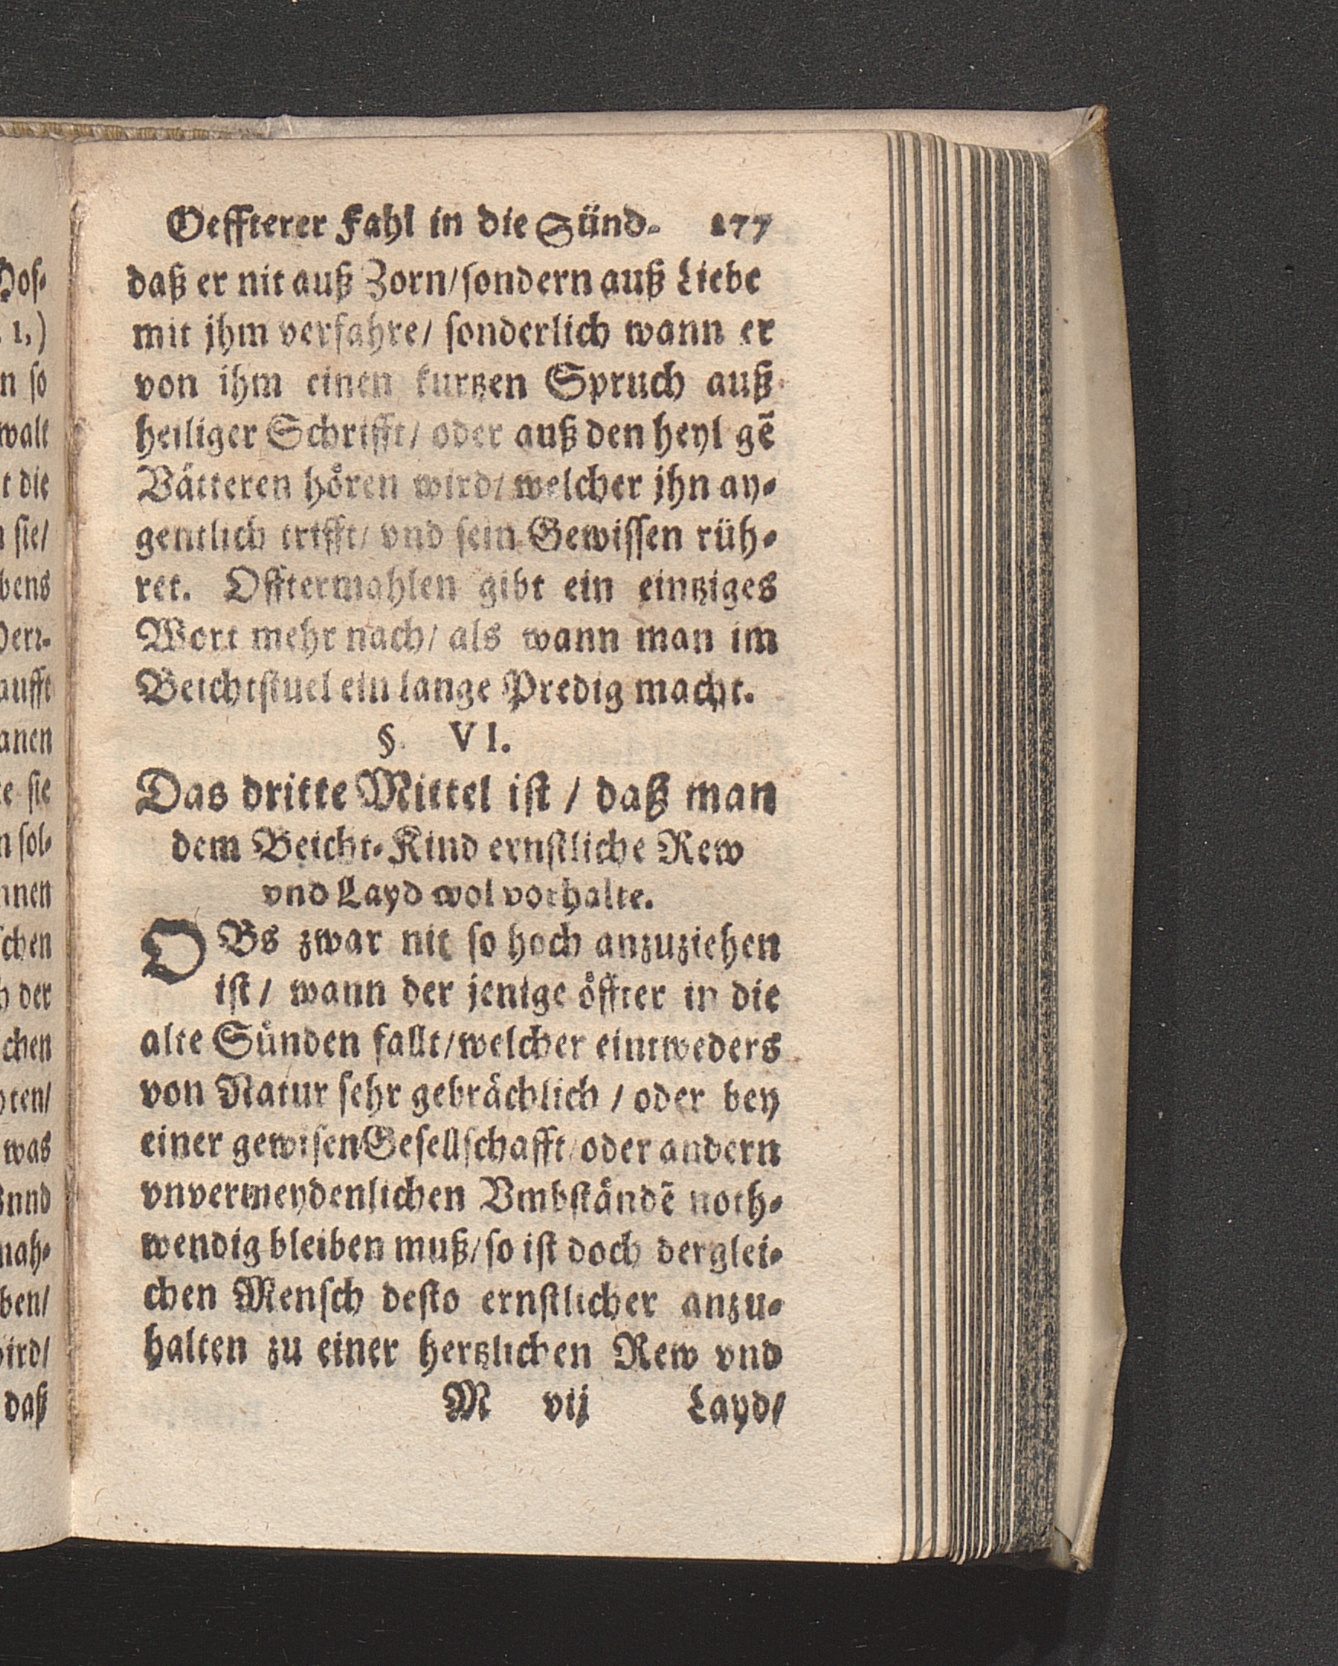 Oeffterer Fahl in die Sünd. 277
daß er nit auß Zorn/sondern auß Liebe
mit jhm verfahre/ sonderlich wann er
von ihm einen kurtzen Spruch auß
heiliger Schrifft/ oder auß den heyl gē
Vätteren hören wird/ welcher jhn ay-
gentlich trifft/ vnd sein Gewissen rüh-
ret. Offtermahlen gibt ein eintziges
Wort mehr nach/ als wann man im
Beichtstuel ein lange Predig macht.
§. VI.
Das dritte Mittel ist / daß man
dem Beicht-Kind ernstliche Rew
vnd Layd wol vorhalte.
OBs zwar nit so hoch anzuziehen
ist / wann der jenige öffter in die
alte Sünden fallt/welcher eintweders
von Natur sehr gebrächlich / oder bey
einer gewisen Gesellschafft/oder andern
vnvermeydenlichen Vmbständē noth-
wendig bleiben muß/so ist doch derglei-
chen Mensch desto ernstlicher anzu-
halten zu einer hertzlichen Rew vnd
M vij Layd/